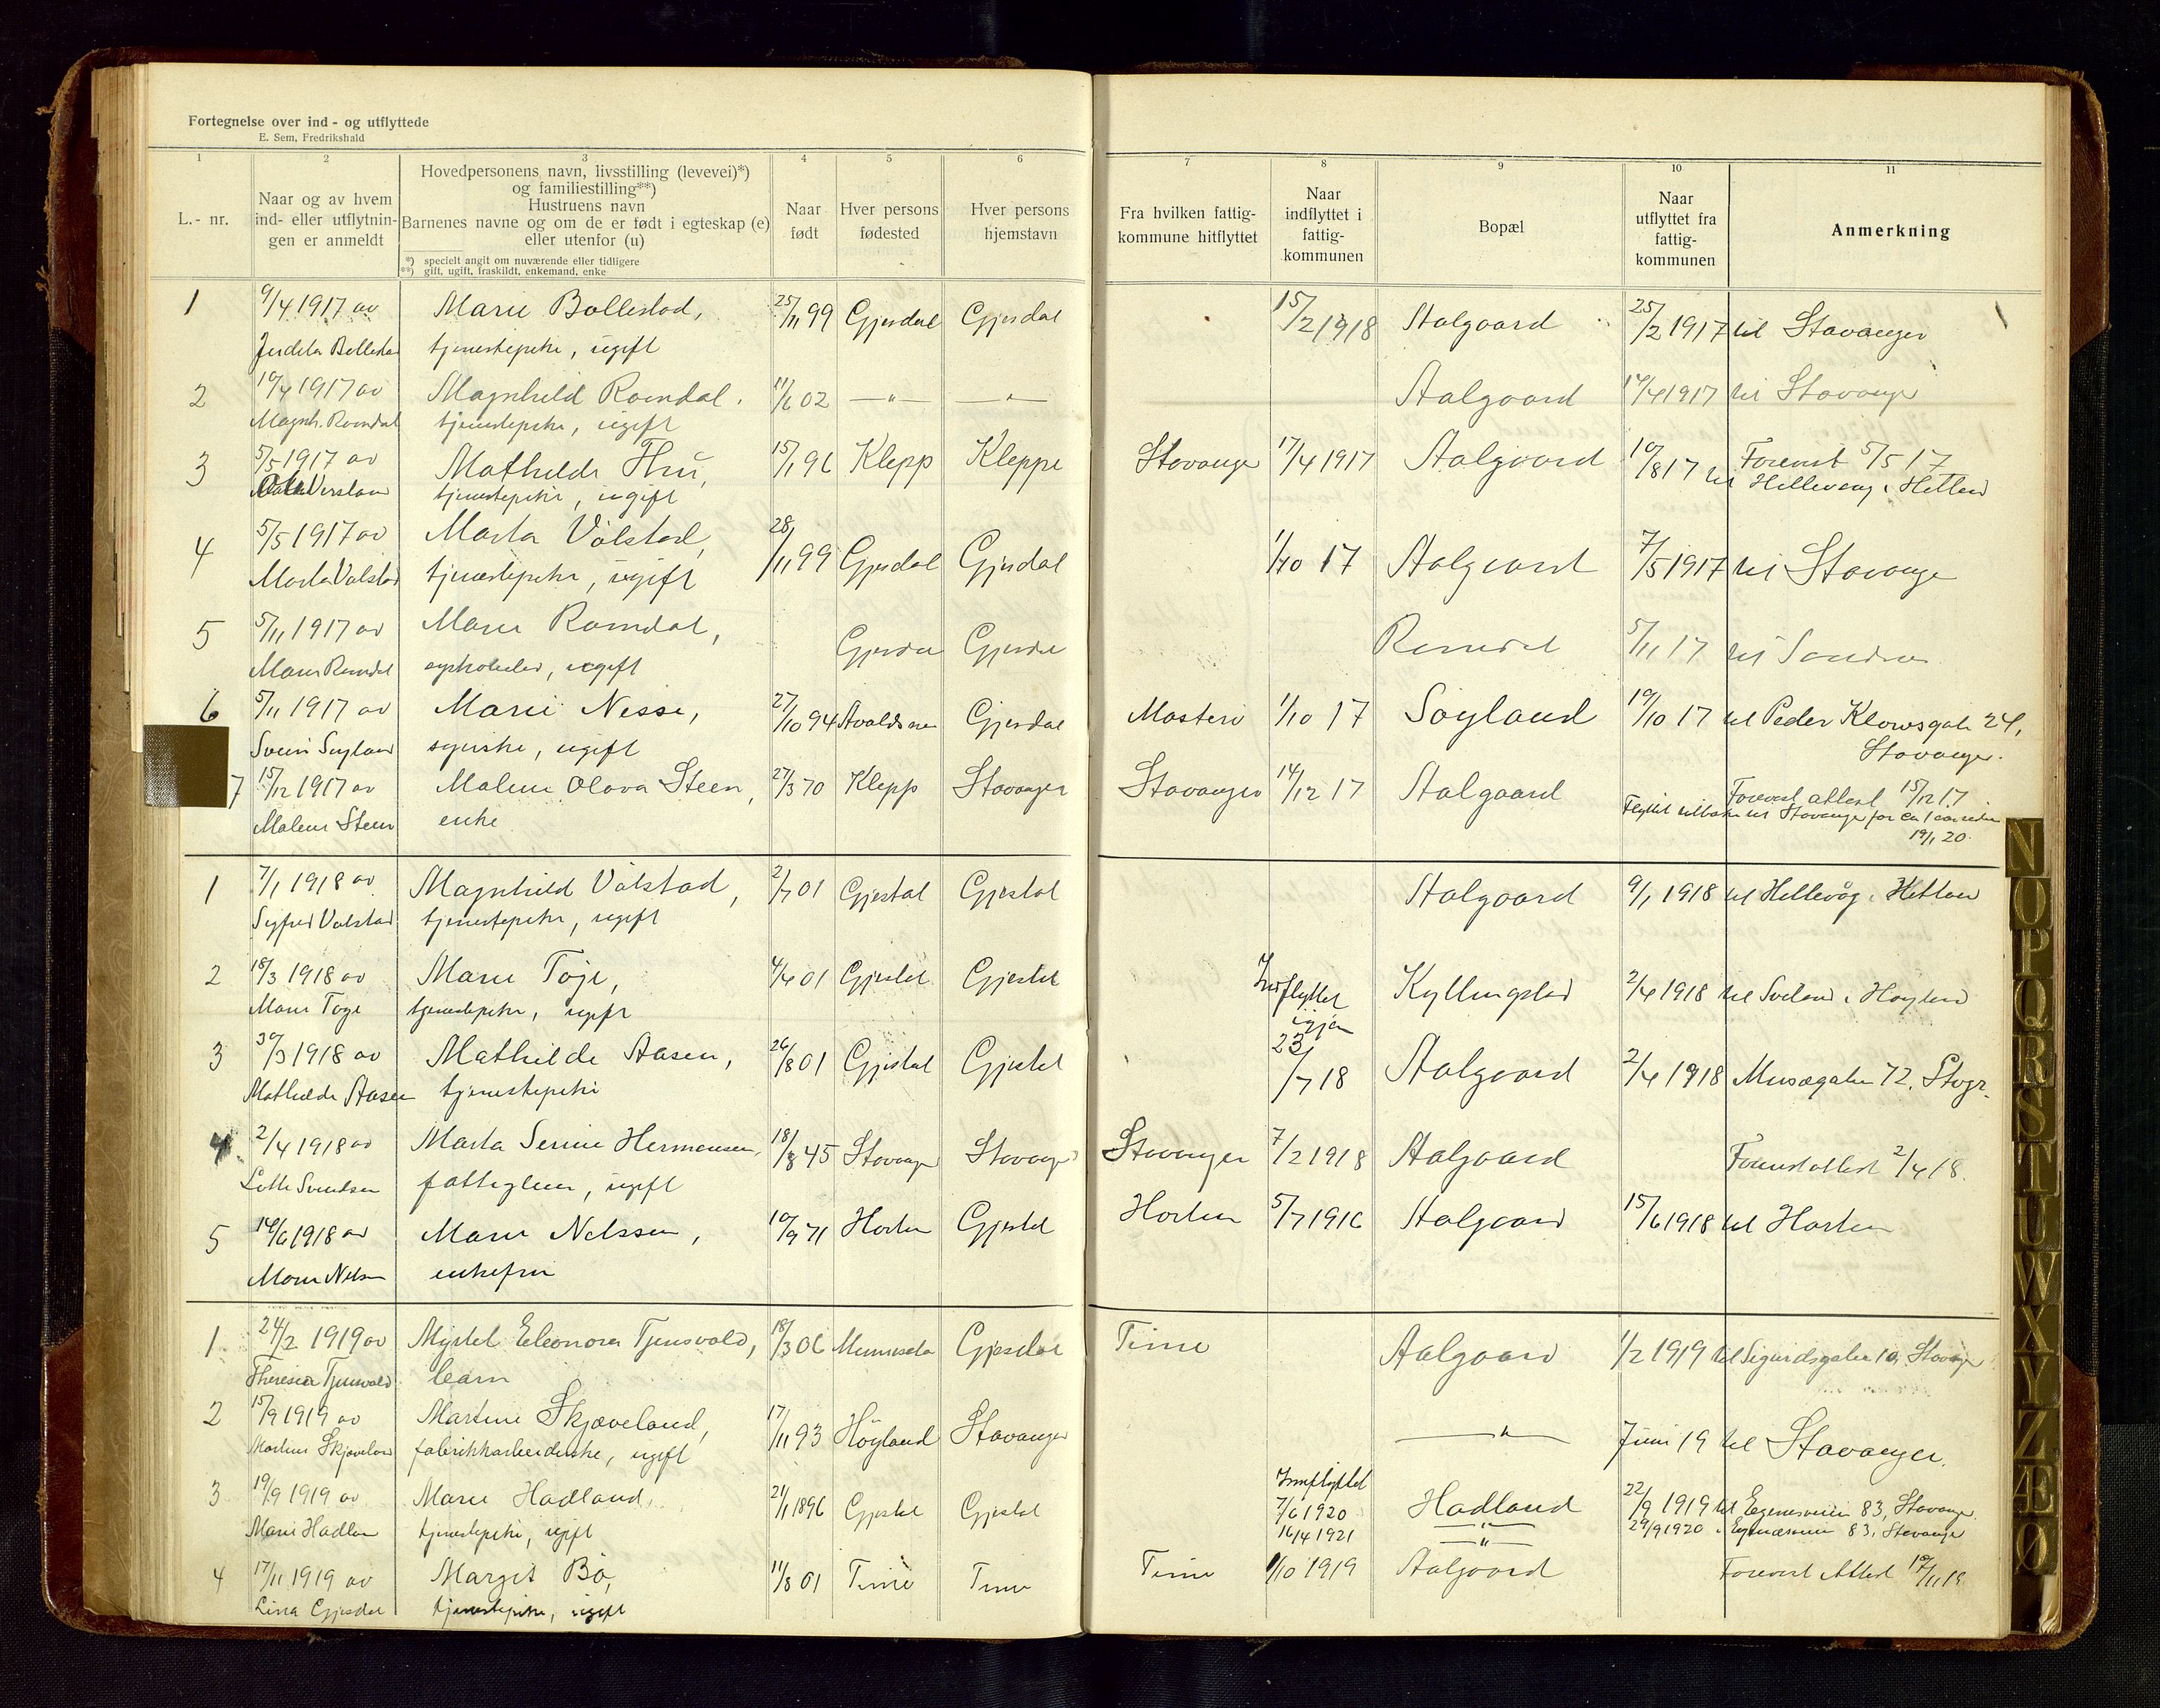 Fortegnelse over ind - og utflyttede
E. Sem, Fredrikshald
1 2 3 4 5 6 7 8 9 10 11
L.- nr.
Naar og av hvem
ind- eller utflytnin-
gen er anmeldt
Hovedpersonens navn, livsstilling (levevei)*)
og familiestilling**)
Hustruens navn
Barnenes navne og om de er født i egteskap (e)
eller utenfor (u)
*) specielt angit om nuværende eller tidligere
**) gift, ugift, fraskildt, enkemand, enke
Naar
født
Hver persons
fødested
Hver persons
hjemstavn
Fra hvilken fattig-
kommune hitflyttet
Naar
indflyttet i
fattig-
kommunen
Bopæl
Naar
utflyttet fra
fattig-
kommunen
Anmerkning
1 9/4 1917 av Marie Bollestad, 25/11 99 Gjesdal Gjesdal 15/2 1918 Aalgaard 25/2 1917 til Stavanger
tjenestepike, ugift
2 10/4 1917 av Magnhild Ramndal, 11/6 02 —„— —„— Aalgaard 14/4 1917 til Stavanger
Magnh. Ramndal tjenestepike, ugift
3 5/5 1917 av Mathilde Thu, 15/1 96 Klepp Kleppe Stavanger 17/4 1917 Aalgaard 10/8 17 til Forevist 5/5 17
tjenestepike, ugift Hillevaag i Hetland
4 5/5 1917 av Marta Válstad, 28/11 99 Gjesdal Gjesdal 1/10 17 Aalgaard 7/5 1917 til Stavanger
Marta Valstad tjenestepike, ugift
5 5/11 1917 av Marie Ramndal, Gjesdal Gjesdal Ramndal 5/11 17 til Sandnes
Marie Ramndal ugift
6 5/11 1917 av Marie Nesse, 27/10 94 Avaldsnes Gjesdal Mosterö 1/10 17 Söyland 10/10 17 til Peder Klowsgate 24,
Svein Søyland syerske, ugift Stavanger.
7 15/12 1917 av Malene Olava Steen, 27/3 70 Klepp Stavanger Stavanger 14/12 17 Aalgaard Forevist attest 15/12 17
Malene Steen enke Flyttet tilbake til Stavanger for ca 1 aar siden
19/1 20.
1 7/1 1918 av Magnhild Válstad, 2/7 01 Gjestal Gjestal Aalgaard 9/1 1918 til Hillevåg i Hetland
Sigfred Valstad tjenestepike, ugift
2 18/3 1918 av Marie Töge, 4/4 01 Gjestal Gjestal Indflyttet Kyllingstad 2/4 1918 til Sveland i Høyland
Marie Töge tjenestepike, ugift igjen
3 30/3 1918 av Mathilde Aasen, 26/8 01 Gjestal Gjestal 23/7 18 Aalgaard 2/4 1918 Musægaten 72, Stvgr.
Mathilde Aasen tjenestepike
4 2/4 1918 av Marta Serine Hermansen, 18/8 45 Stavanger Stavanger Stavanger 7/2 1918 Aalgaard Forevist attest 2/4 18.
Lotte Svendsen fattiglem, ugift
5 14/6 1918 av Marie Nelssen, 10/9 71 Horten Gjestal Horten 5/7 1916 Aalgaard 15/6 1918 til Horten
Marie Nelsen enkefru
1 24/2 1919 av Myrtel Eleonora Tjensvold, 18/3 06 Minnesota Gjesdal Time Aalgaard 1/2 1919 til Sigurdsgaten 10, Stavanger
Theresia Tjensvold barn
2 15/9 1919 av Martine Skjæveland, 17/11 93 Höyland Stavanger —„— Juni 19 til Stavanger.
Martine Skjæveland fabrikkarbeiderske, ugift
3 19/9 1919 av Marie Hadland, 21/1 1896 Gjestal Gjestal Innflyttet 7/6 1920 Hadland 22/9 1919 til Egenesveien 83, Stavanger.
Marie Hadland tjenestepike, ugift 16/4 1921 —„— 29/9 1920 " Egenesveien 83, Stavanger
4 17/11 1919 av Margit Bö, 11/8 01 Time Time Time 1/10 1919 Aalgaard Forevist Attest 17/11 19.
Lina Gjesdal tjenestepike, ugift
N
O
P
Q
R
S
T
U
W
X
Y
Z
Æ
Ø